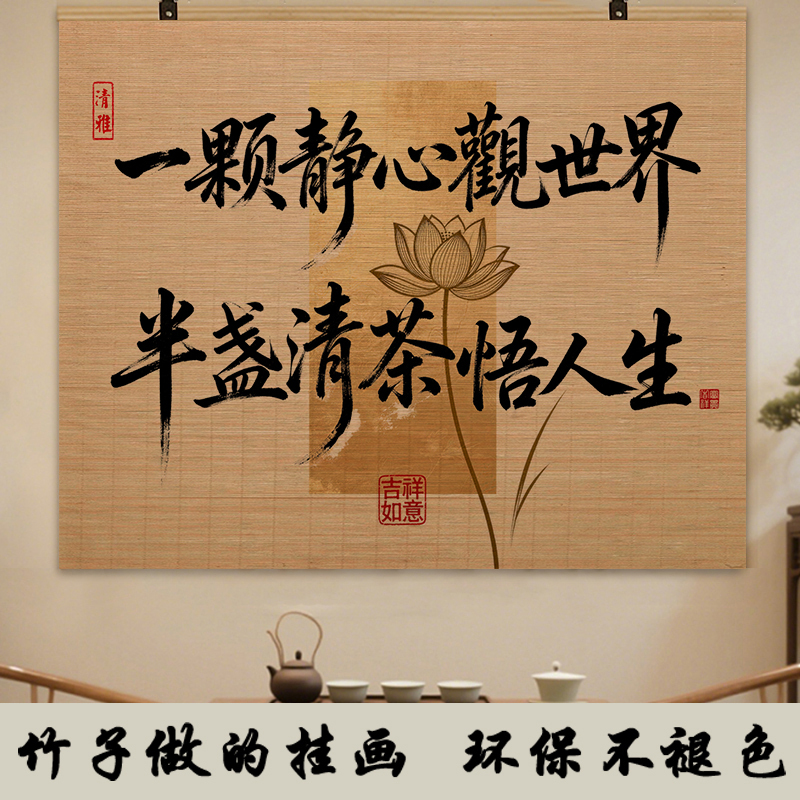 清雅
一颗静心觀世界
半盏清茶悟人生
吉祥
如意
竹子做的挂画 环保不褪色